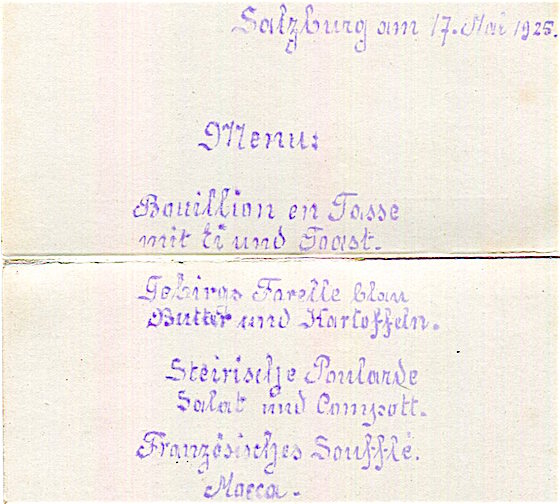 Salzburg am 17. Mai 1925.
Menu:
Bouillion en Tasse
mit Ei und Toast.
Gebirgs Forelle blau
Butter und Kartoffeln.
Steirische Poularde
Salat und Compott.
Französisches Soufflé.
Mocca.